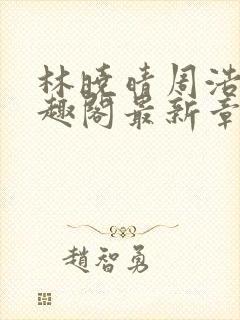 林晓晴周浩
趣阁最新章
趙智勇